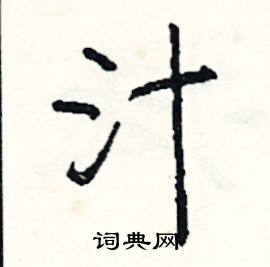 汁
词典网